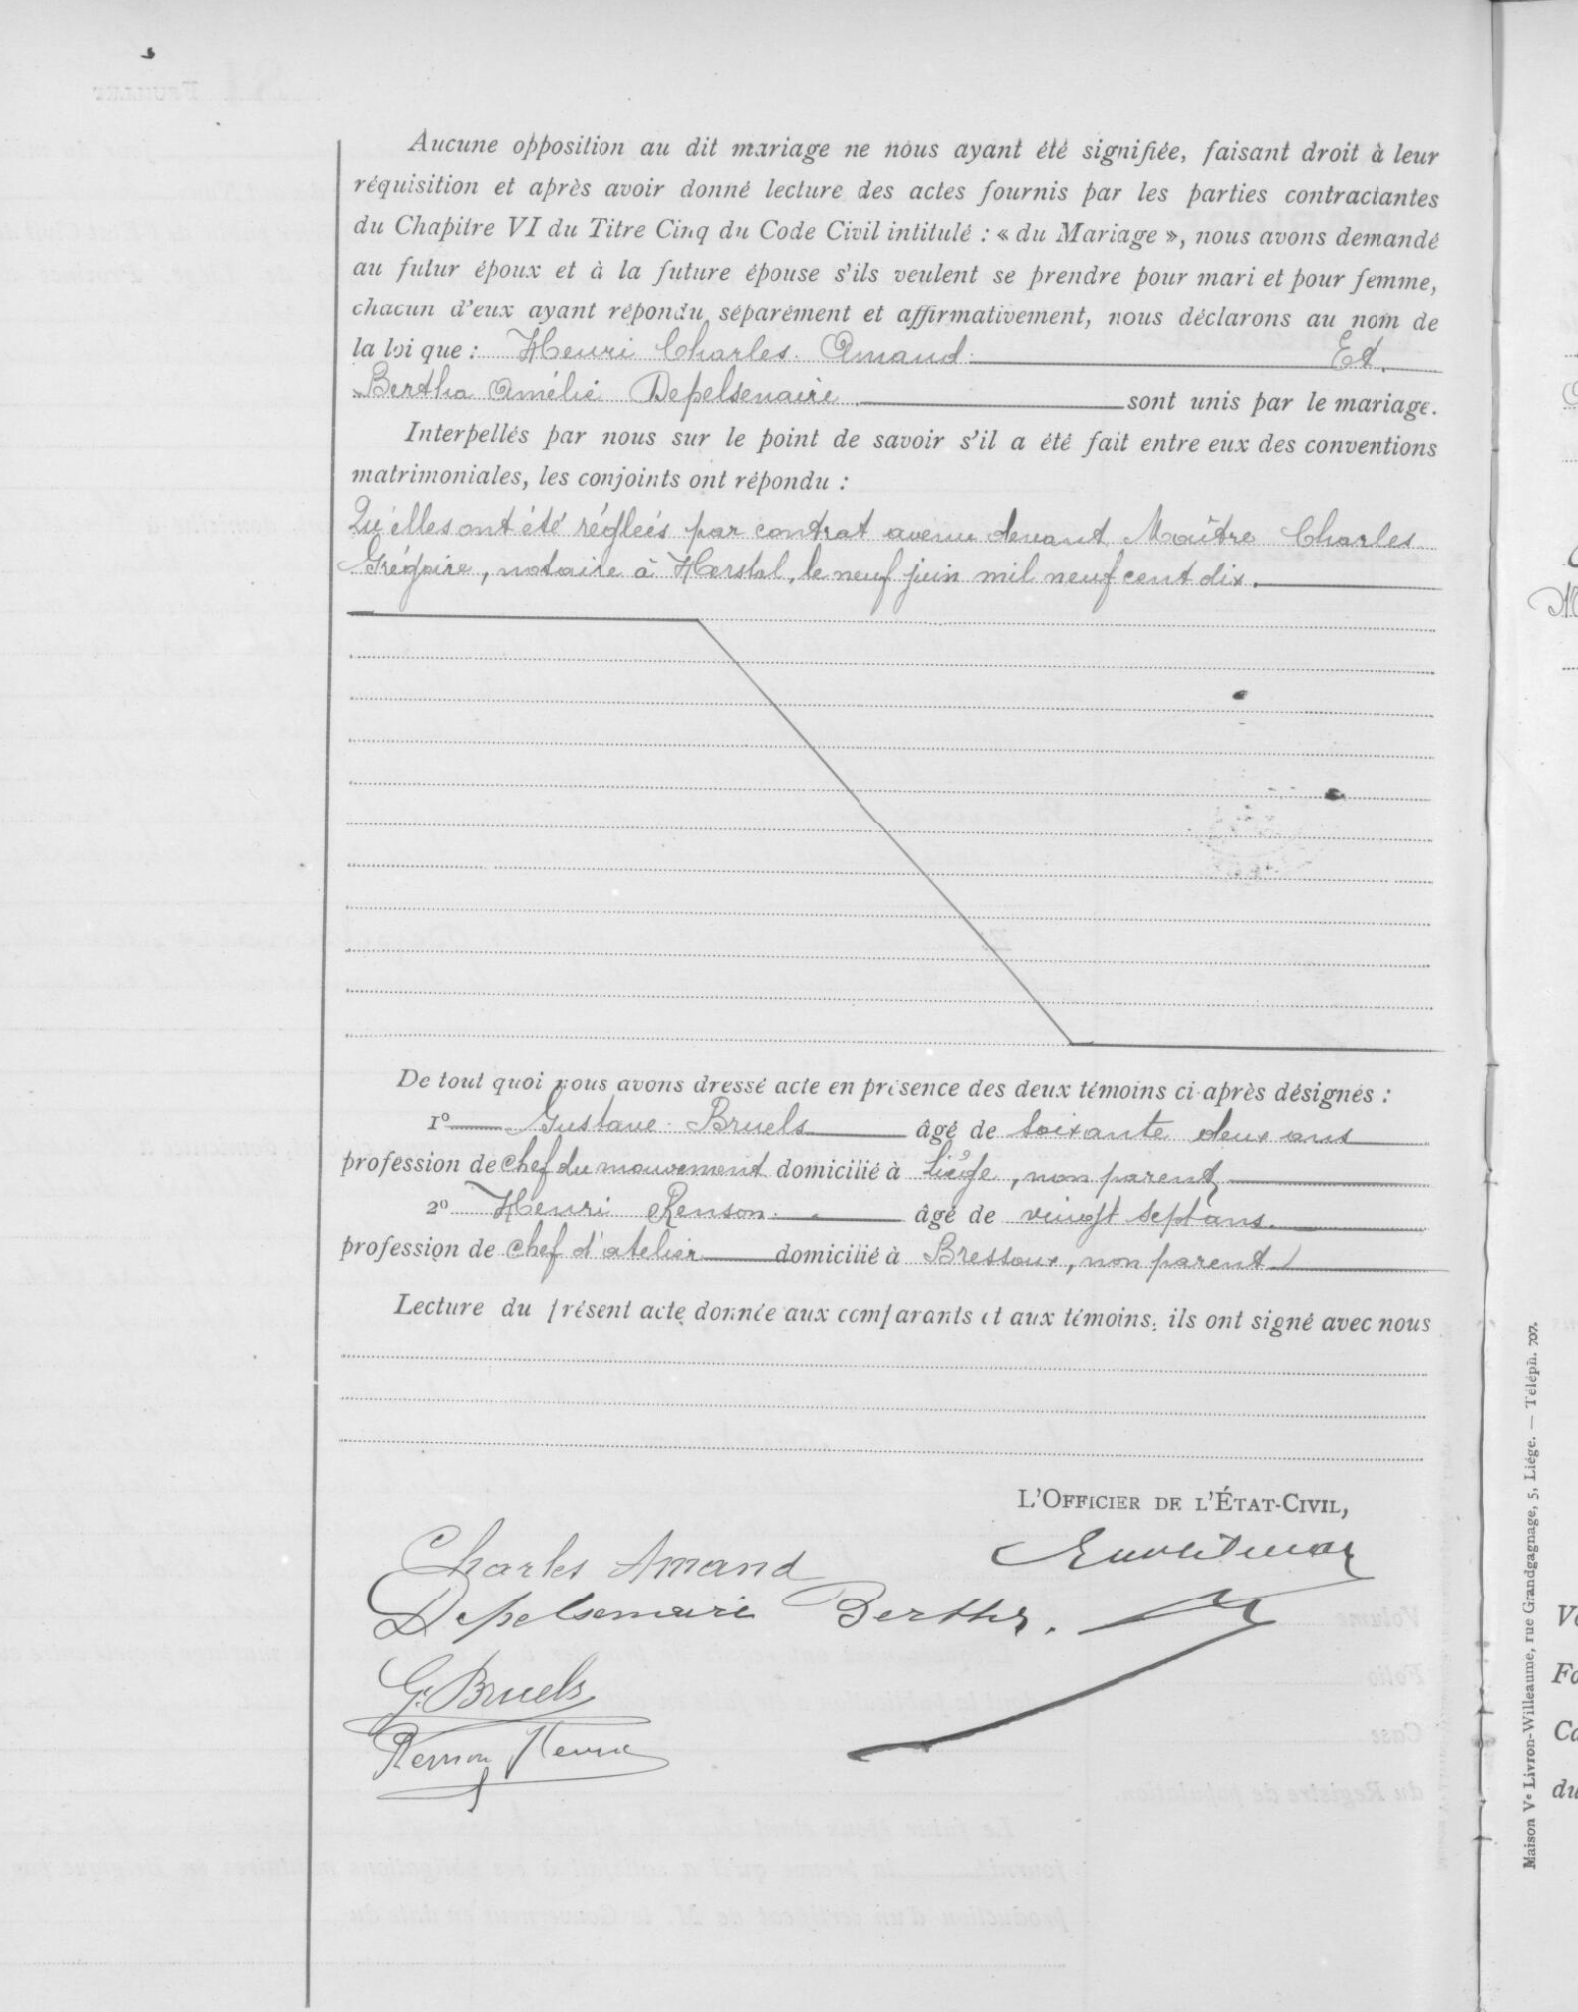 Aucune opposition au dit mariage ne nous ayant été signifiée, faisant droit à leur
réquisition et après avoir donné lecture des actes fournis par les parties contractantes
du Chapitre VI du Titre Cinq du Code Civil intitulé : « du Mariage », nous avons demandé
au futur époux et à la future épouse s'ils veulent se prendre pour mari et pour femme,
chacun d'eux ayant répondu séparément et affirmativement, nous déclarons au nom de
la loi que : Henri Charles Amand Et
Bertha Amélie Depelsenaire sont unis par le mariage.
Interpellés par nous sur le point de savoir s'il a été fait entre eux des conventions
matrimoniales, les conjoints ont répondu :
Qu'elles ont été réglées par contrat avenu devant Maître Charles
Grégoire, notaire à Herstal, le neuf juin mil neuf cent dix.
De tout quoi nous avons dressé acte en présence des deux témoins ci-après désignés :
1º Gustave Bruels âgé de soixante deux ans
profession de chef du mouvement domicilié à Liége, non parent,
2º Henri Renson âgé de vingt sept ans
profession de chef d'atelier domicilié à Bressoux, non parent
Lecture du présent acte donnée aux comparants et aux témoins, ils ont signé avec nous
L'OFFICIER DE L'ÉTAT-CIVIL,
Charles Amand
Depelsenaire Bertha.
G. Bruels
Renson Henri
Maison Vᵉ Livron-Willeaume, rue Grandgagnage, 5, Liége. — Téléph. 707.